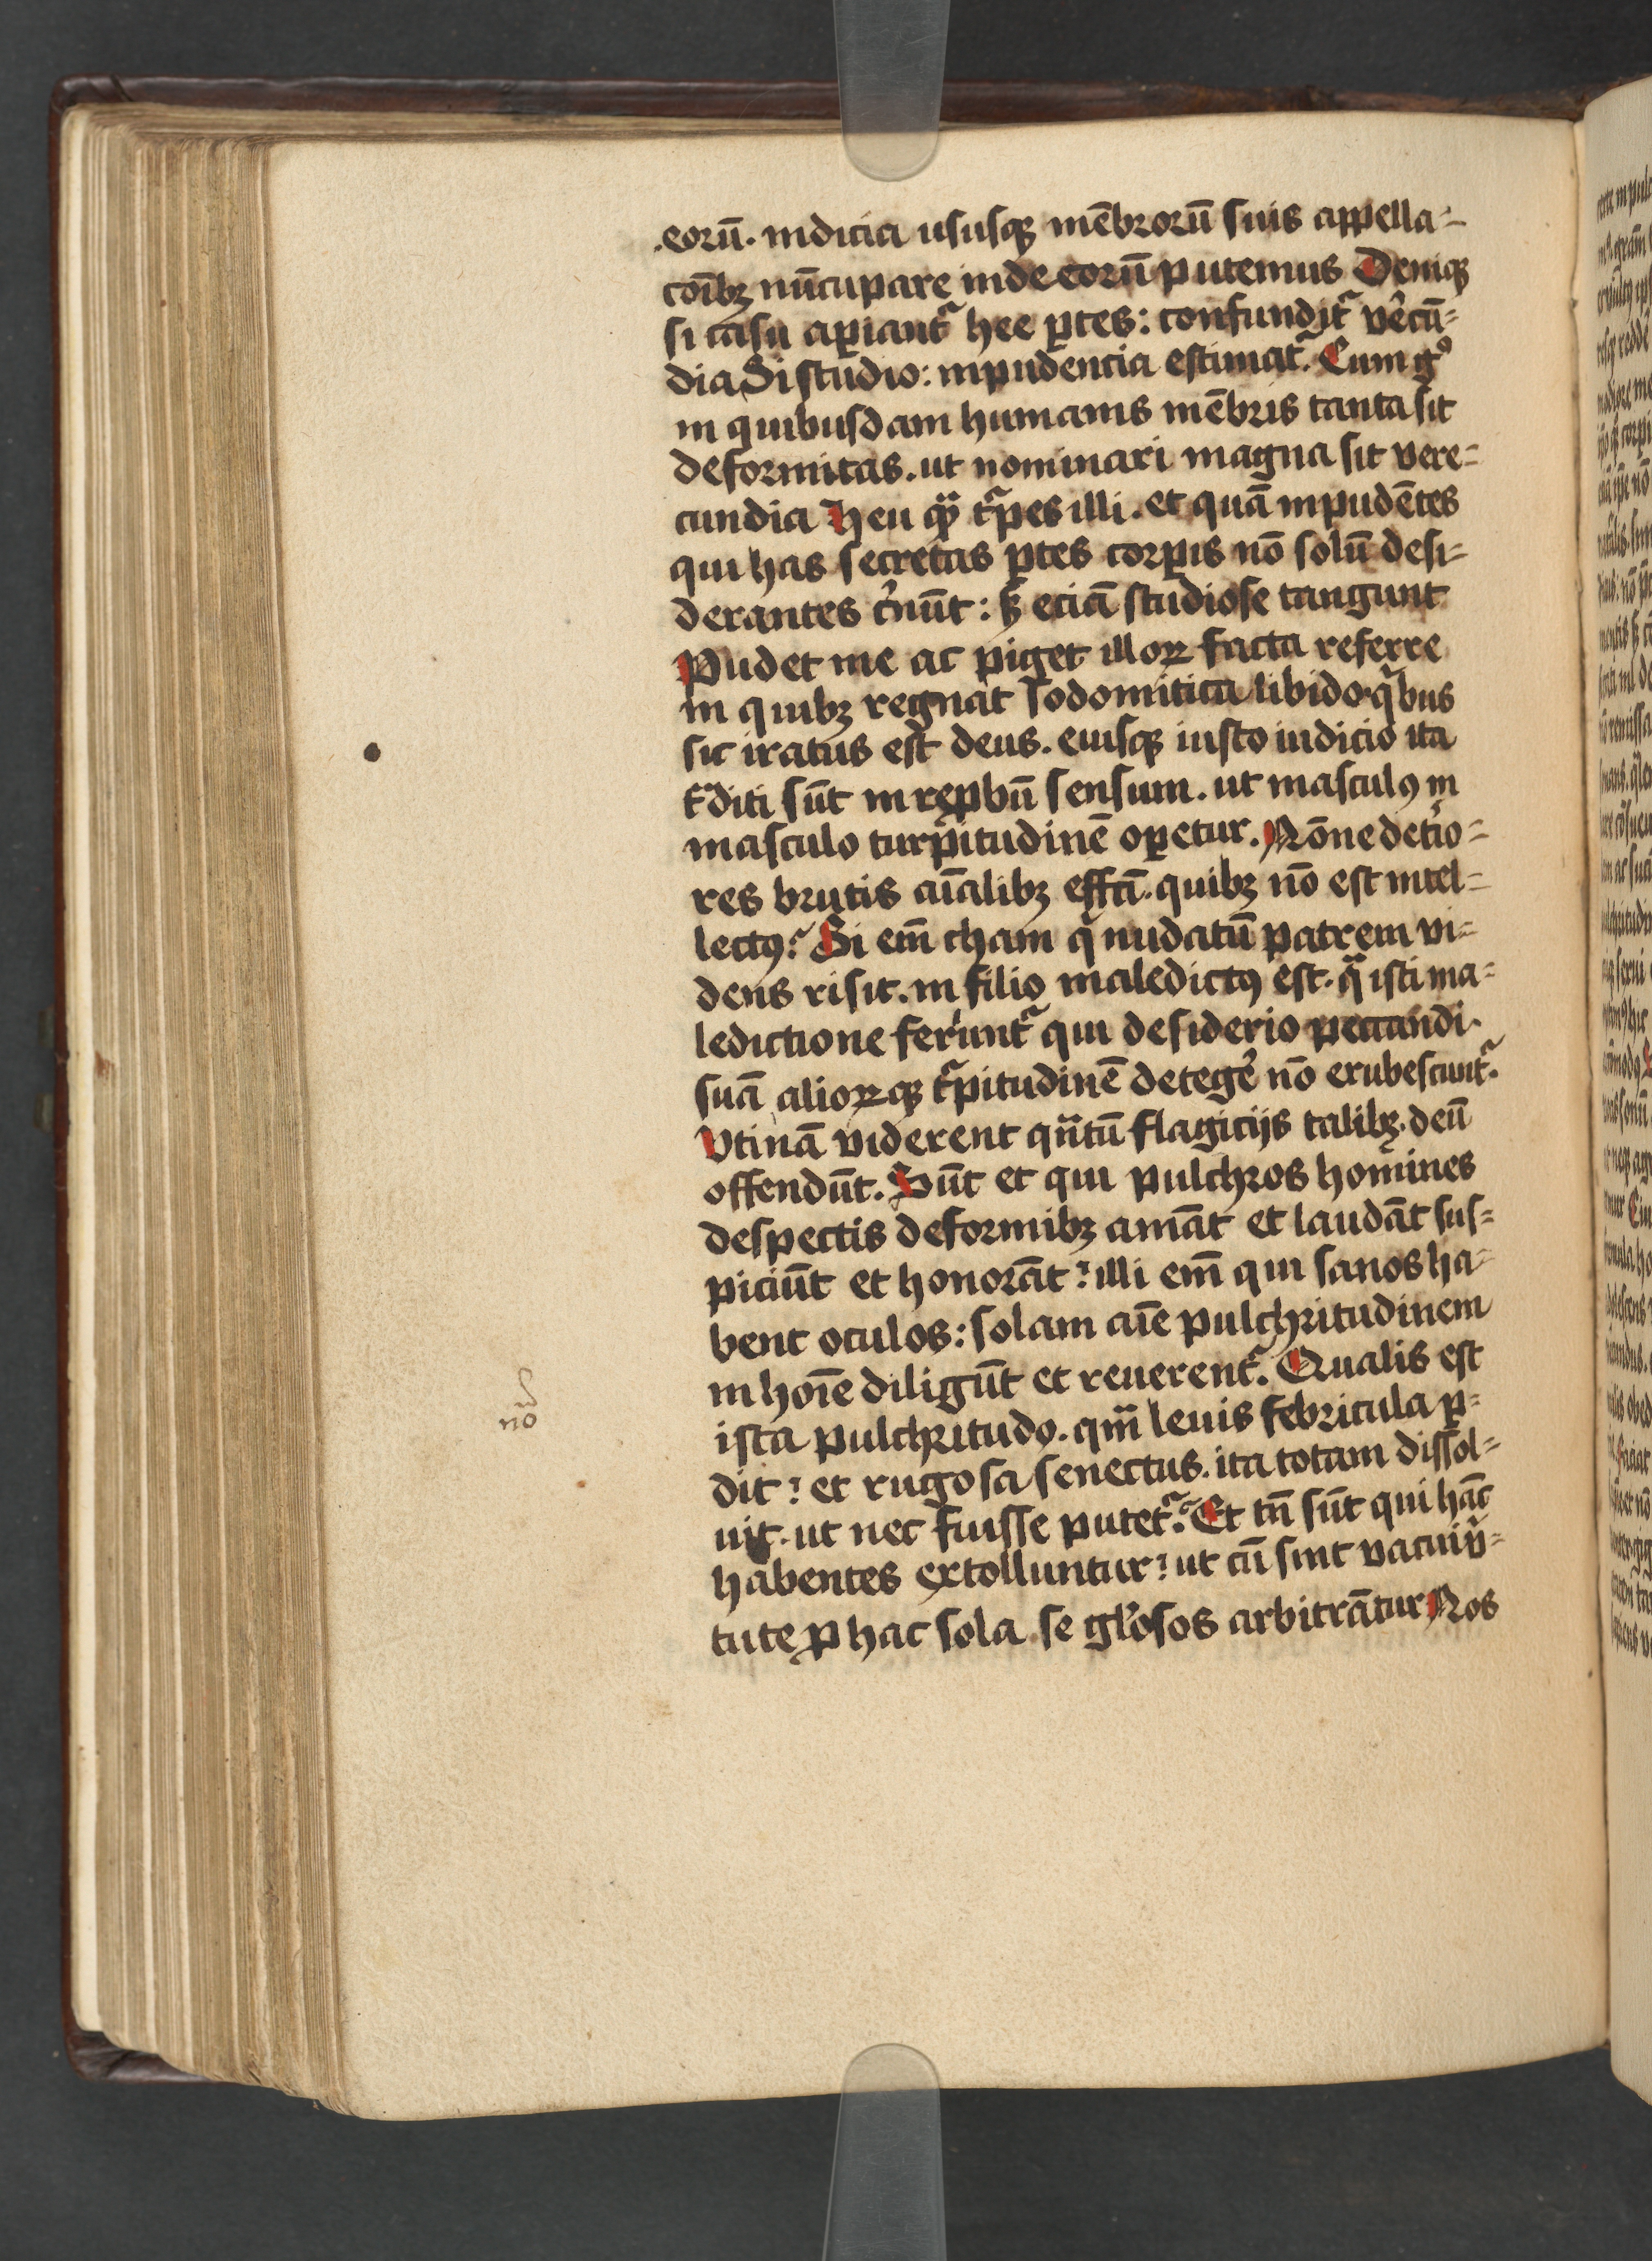 .eorū. indicia ususqꝫ mēbrorū suis appella-
cōībꝫ nūcupare indecorū putemus Deniqꝫ
si casu aꝑiantᷣ hee ꝑtes: confunditᷣ vͤecū-
dia Si studio: inpudencia estimatᷣ. Cum gͦ
in quibusdam humanis mēbris tanta sit
deformitas. ut nominari magna sit vere-
cundia Heu qͣꝫ tᷣpes illi. et quā inpudētes
qui has secretas ꝑtes corꝑis nō solū desi-
derantes cͤnūt: sꝫ eciā studiose tangunt
Pudet me ac piget illoꝝ facta referre
in quibꝫ regnat sodomitica libido. qͥbus
sic iratus est deus. eiusqꝫ iusto iudicio ita
tͣditi sūt in reꝓbū sensum. ut masculꝯ in
masculo turpitudinē oꝑetur. Nōne detͥo-
res brutis aīalibꝫ effcī. quibꝫ nō est intel-
lectꝯ? Si em̄ cham qͥ nudatū patrem vi-
dens risit. in filio maledictꝯ est. qͣ isti ma-
ledictione feriuntᷣ qui desiderio peccandi
suā alioꝝqꝫ tᷣpitudinē detegeͤ nō erubescuntᷣ.
Vtinā viderent qͣntū flagicijs talibꝫ. deū
offendūt. Sūt et qui pulchros homines
despectis deformibꝫ amāt et laudāt sus-
piciūt et honorāt? illi em̄ qui sanos ha-
bent oculos: solam aīe pulchritudinem
in hoīe diligūt et reuerentᷣ. Qualis est
ista pulchritudo. qm̄ leuis febricula ꝑ-
dit? et rugosa senectus. ita totam dissol-
uit. ut nec fuisse putetᷣ. Et tn̄ sūt qui hāc
nō
habentes extolluntur? ut cū sint vacui vͥ-
tute ꝓ hac sola se glͦosos arbitrātur Nos